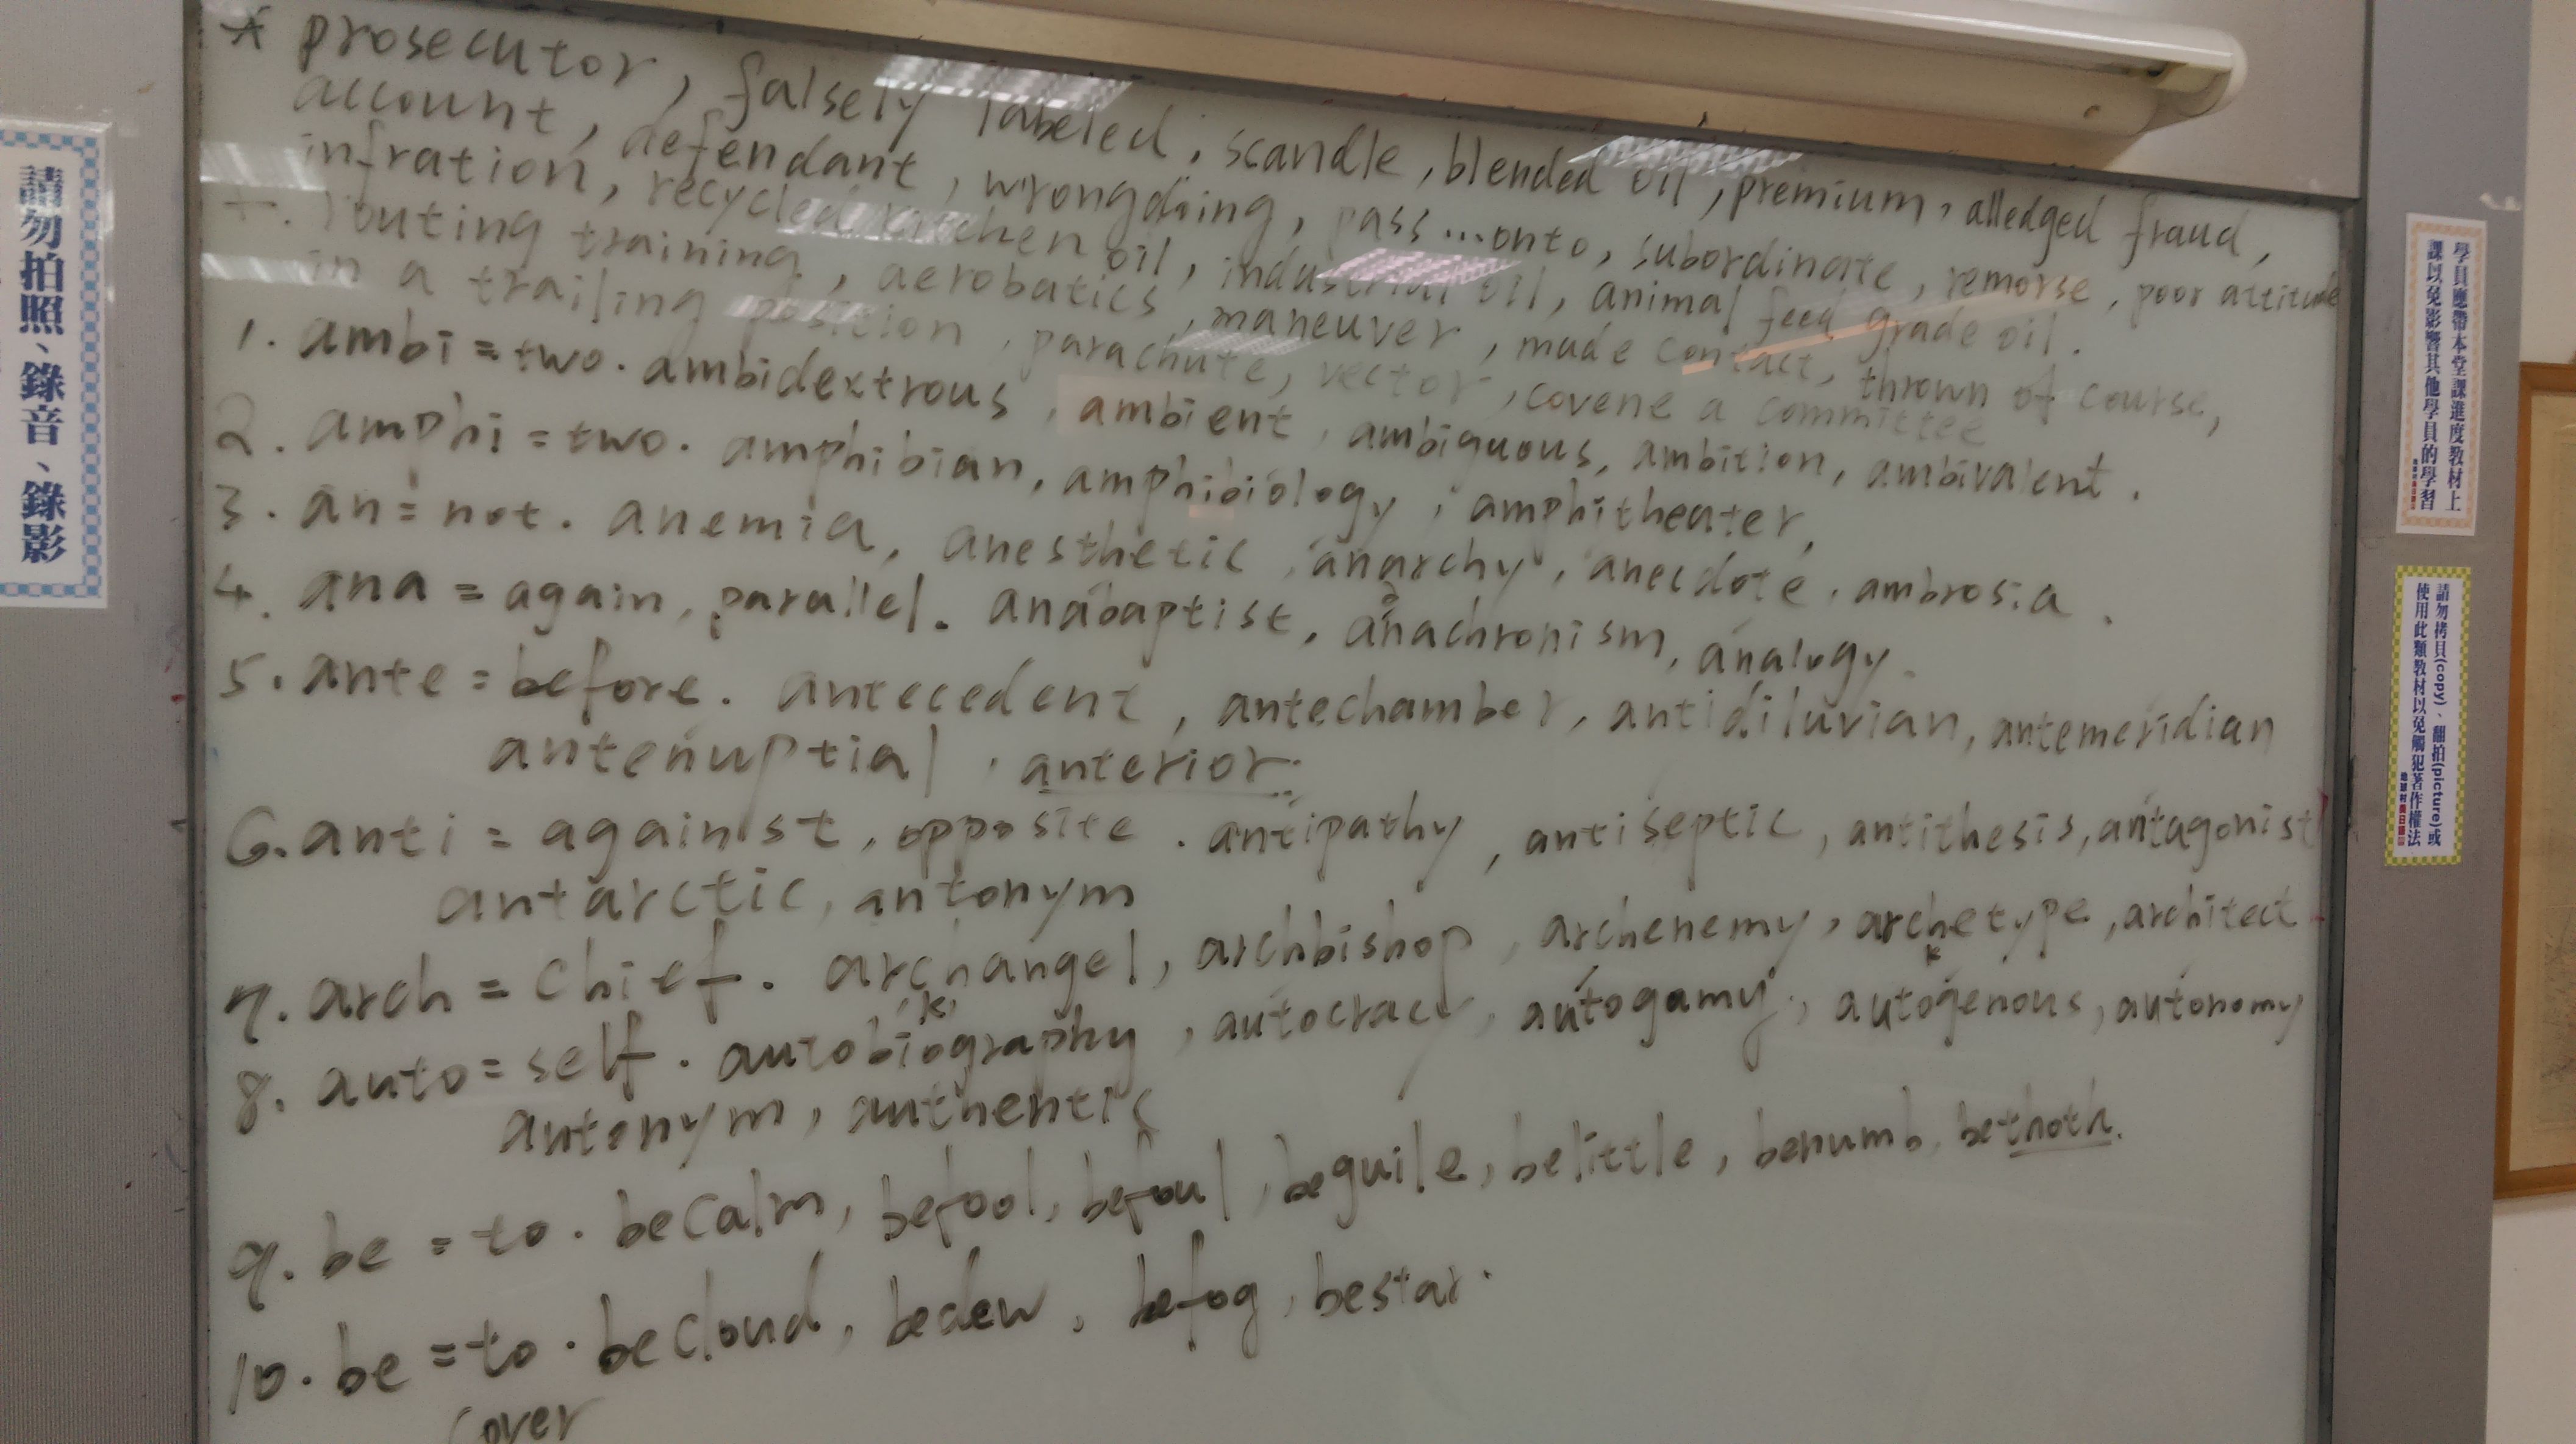 * prosecutor, falsely labeled, scandle, blended oil, premium, alledged fraud,
account, defendant, wrongdoing, pass...onto, subordinate, remorse, poor attitude
infration, recycled kitchen oil, industrial oil, animal feed grade oil.
+. routing training, aerobatics, maneuver, made contact, thrown of course,
in a trailing position, parachute, vector, covene a committee
1. ambi = two. ambidextrous, ambient, ambiguous, ambition, ambivalent.
2. amphi = two. amphibian, amphibiology, amphitheater,
3. an = not. anemia, anesthetic, anarchy, anecdote, ambrosia.
4. ana = again, parallel. anabaptist, anachronism, analogy.
5. ante = before. antecedent, antechamber, antidiluvian, antemeridian
antenuptial, anterior.
6. anti = against, opposite. antipathy, antiseptic, antithesis, antagonist
antarctic, antonym
7. arch = chief. archangel, archbishop, archenemy, archetype, architect
k k
8. auto = self. autobiography, autocracy, autogamy, autogenous, autonomy
autonym, authentic
9. be = to. becalm, befool, befoul, beguile, belittle, benumb, bethoth.
10. be = to. becloud, bedew, befog, bestar.
cover
請勿拍照、錄音、錄影
學員應帶本堂課進度教材上
課以免影響其他學員的學習
請勿拷貝(copy)、翻拍(picture)或
使用此類教材以免觸犯著作權法